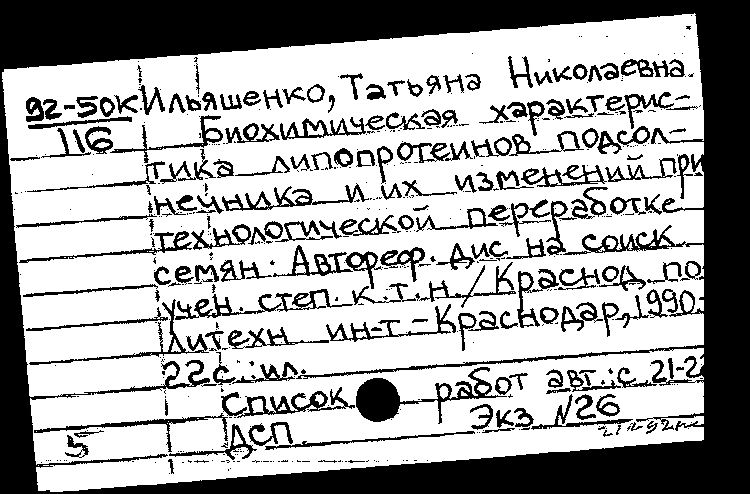 92-50к Ильяшенко, Татьяна Николаевна.
116 Биохимическая характерис-
тика липопротеинов подсол-
нечника и их изменений при
технологической переработке
семян: Автореф. дис на соиск
учен. степ. к.т.н. / Краснод. по-
литехн ин-т. - Краснодар, 1990.-
22с.:ил.
Список работ авт.: с. 21-22
ДСП. Экз №26
5